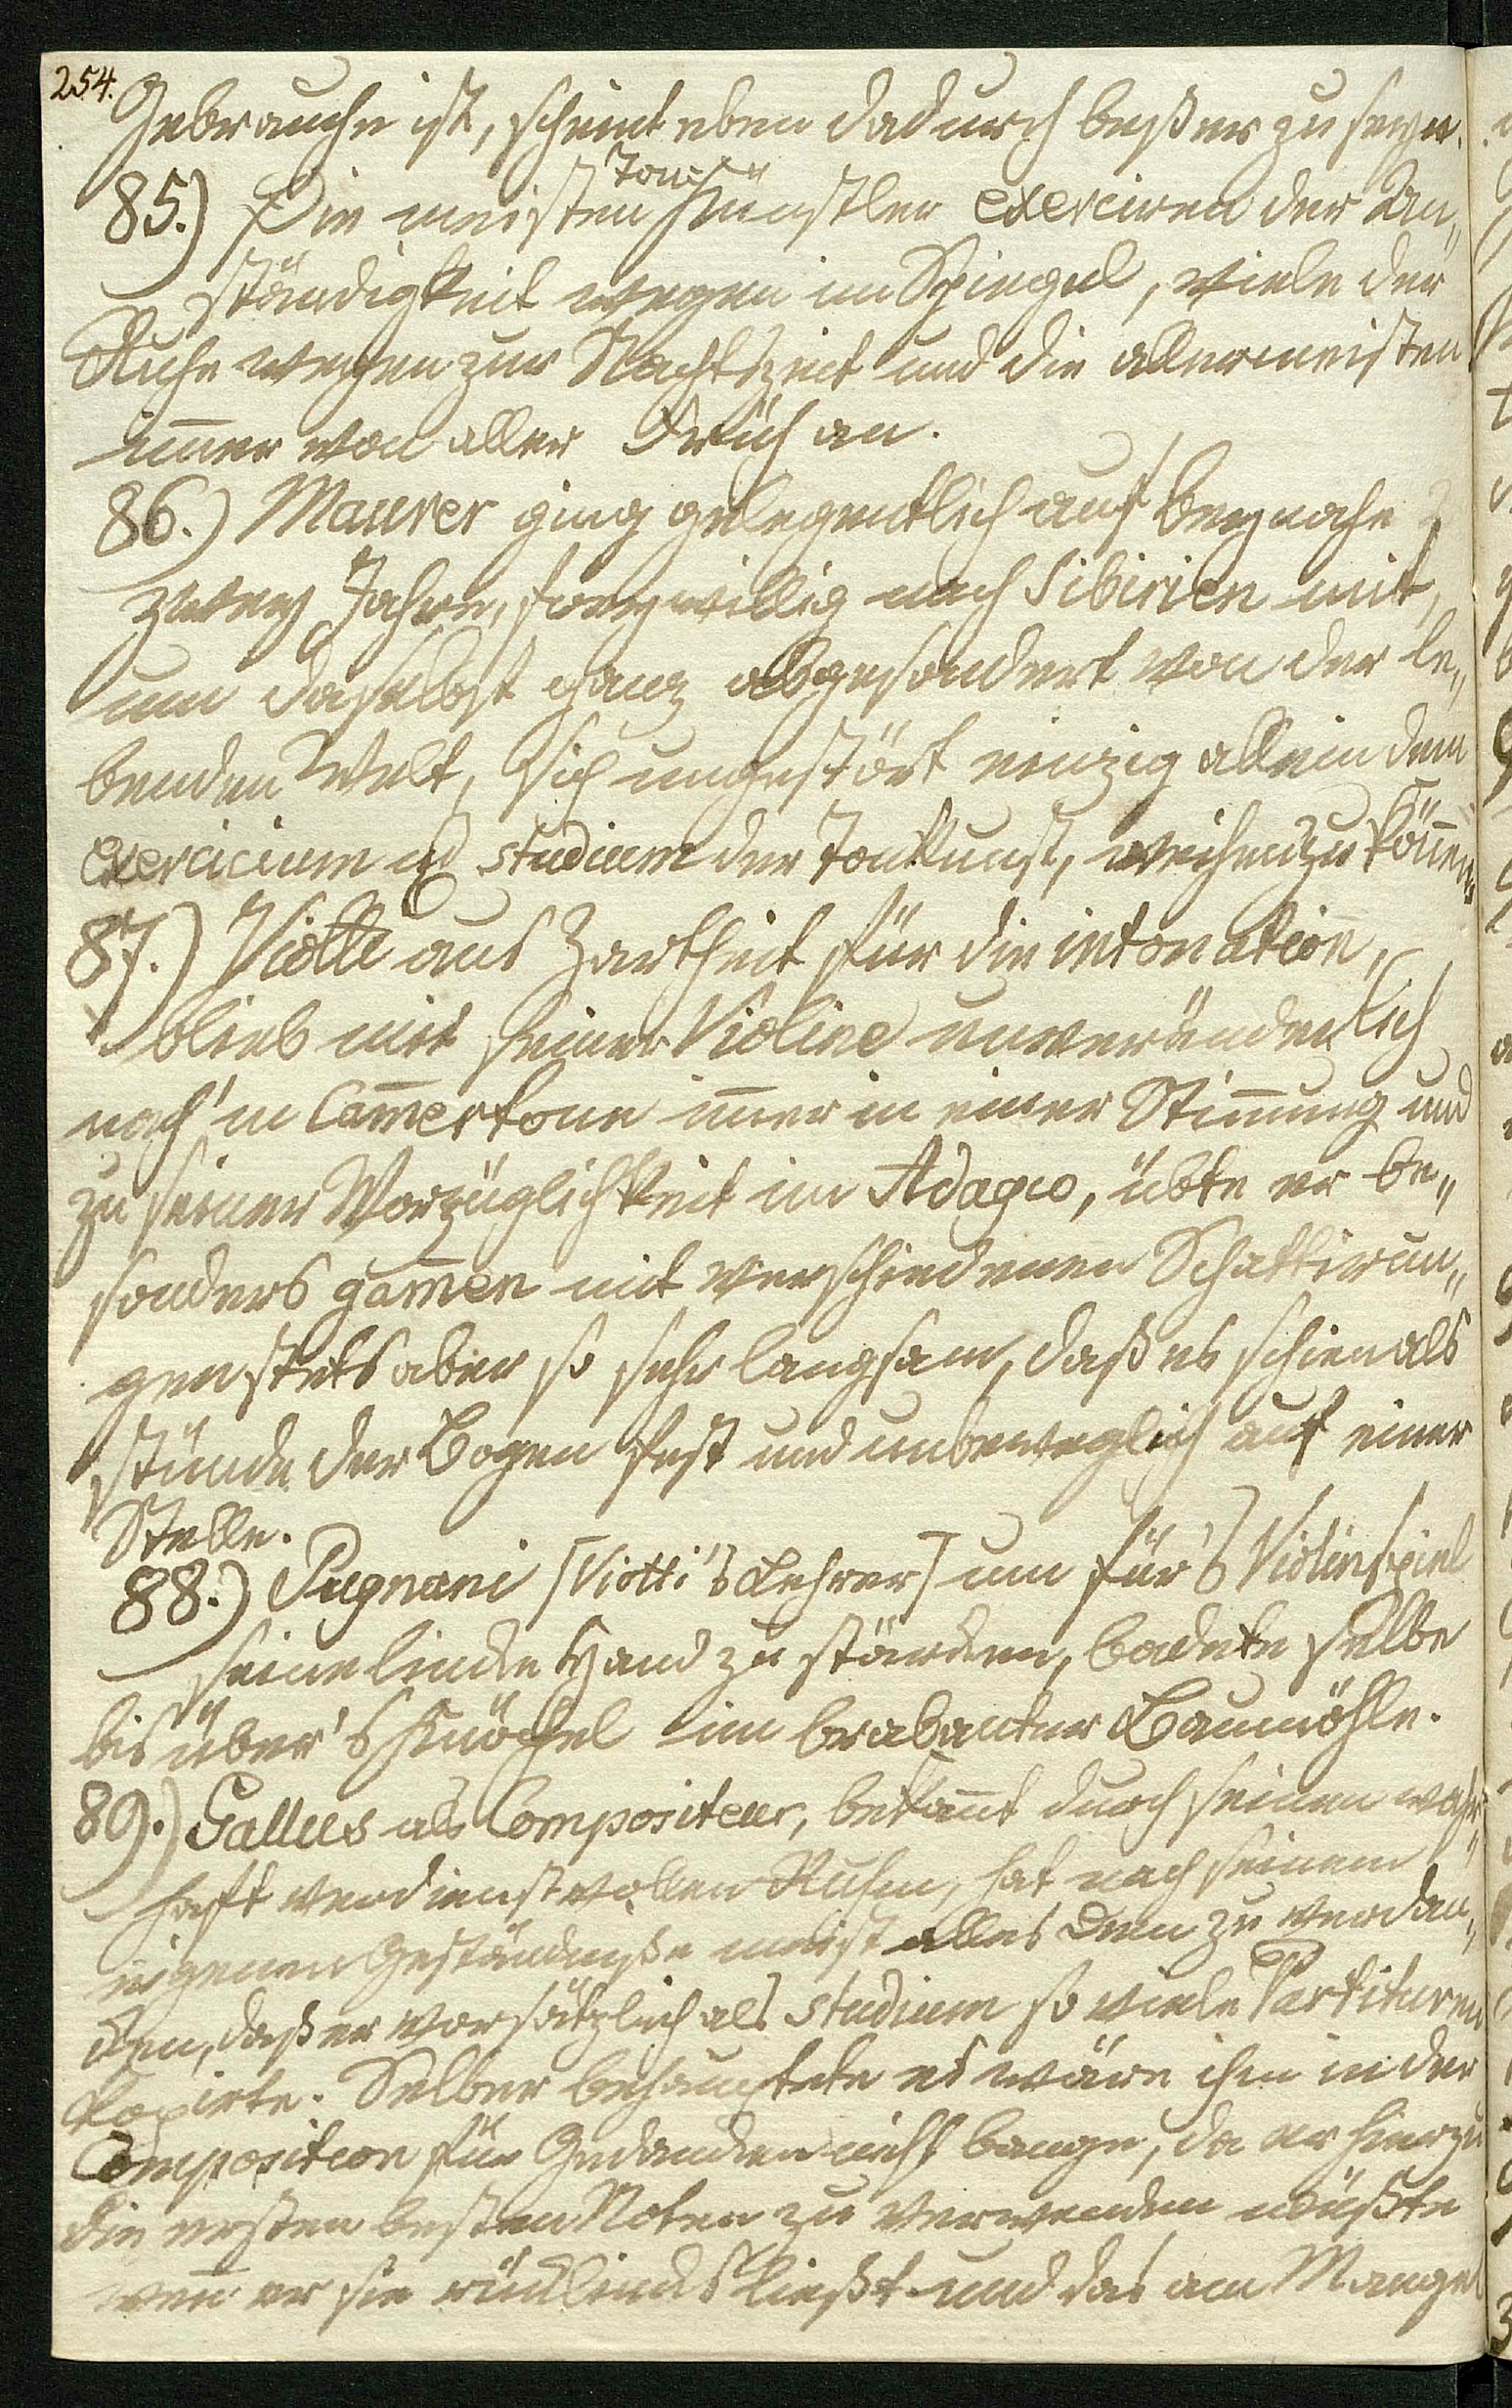 254.
Gebrauche ist, scheint eben dadurch beßer zu seyn.
85.) Die meisten Tonkünstler exerciren der An„
ständigkeit wegen im Spiegel, viele der
Ruhe wegen zur Nachtszeit und die allermeisten
im̄er von aller Früh an.
86.) Maurer ging gelegentlich auf beynahe
zwey Jahre, freywillig nach Sibirien mit,
um daselbst ganz abgesondert von der le„
benden Welt, sich ungestört einzig allein dem
exercicium u studium der Tonkunst, weihen zu kön̄en.
87.) Viotti aus Zartheit für die intonation,
blieb mit seiner Violine unveränderlich
nach'm Cam̄ertone im̄er in einer Stim̄ung und
zu seiner Vorzüglichkeit im Adagio, übte er be„
sonders gam̄en mit verschiedenen Schattirun„
gen stets aber so sehr langsam, daß es schien als
stünde der Bogen fest und unbeweglich auf einer
Stelle.
88.) Pugnani [Viotti's Lehrer] um für's Violinspiel
seine lincke Hand zu stärcken, badete selbe
bis über's Knöchel im brabanter Baumöhle.
89.) Gallus als Compositeur, bekan̄t durch seinen wahr„
haft verdienstvollen Ruhm, hat nach seinem
eigenen Geständniße meist alles Dem zu verdan„
cken, daß er vorsätzlich als Studium so viele Partituren
kopirte. Selber behauptete es wäre ihm in der
Composition für Gedancken nicht bange, da er hierzu
die ersten besten Noten zu verwenden wüßte
wen̄ er sie rücklings ließt und das am Mangel